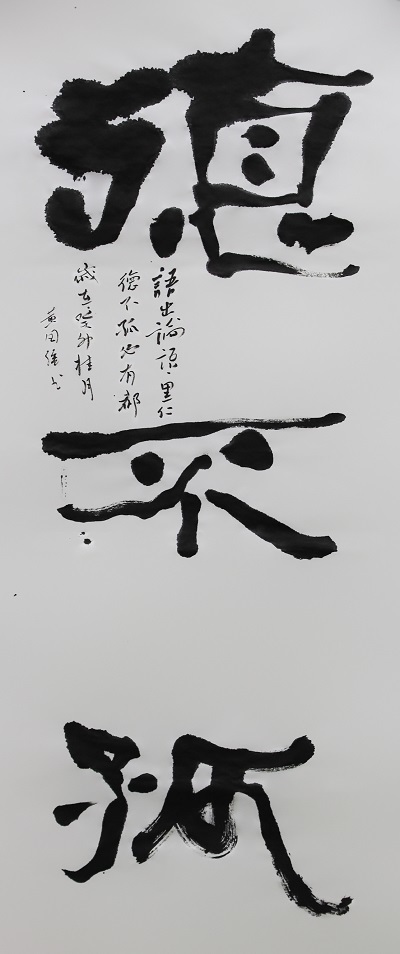 德不孤
語出論語·里仁
德不孤必有鄰
歲在癸卯桂月